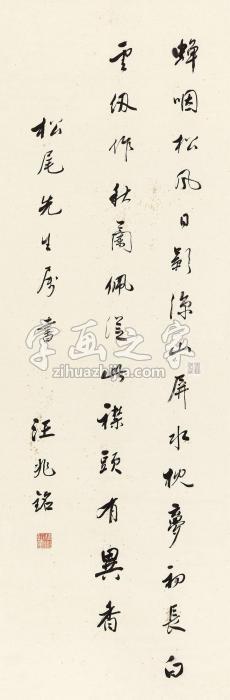 蟬咽松風日影涼山屏水枕夢初長白
雲紉作秋蘭佩從此襟頭有異香
松尾先生屬書 汪兆銘
字画之家
www.zihuazhijia.com